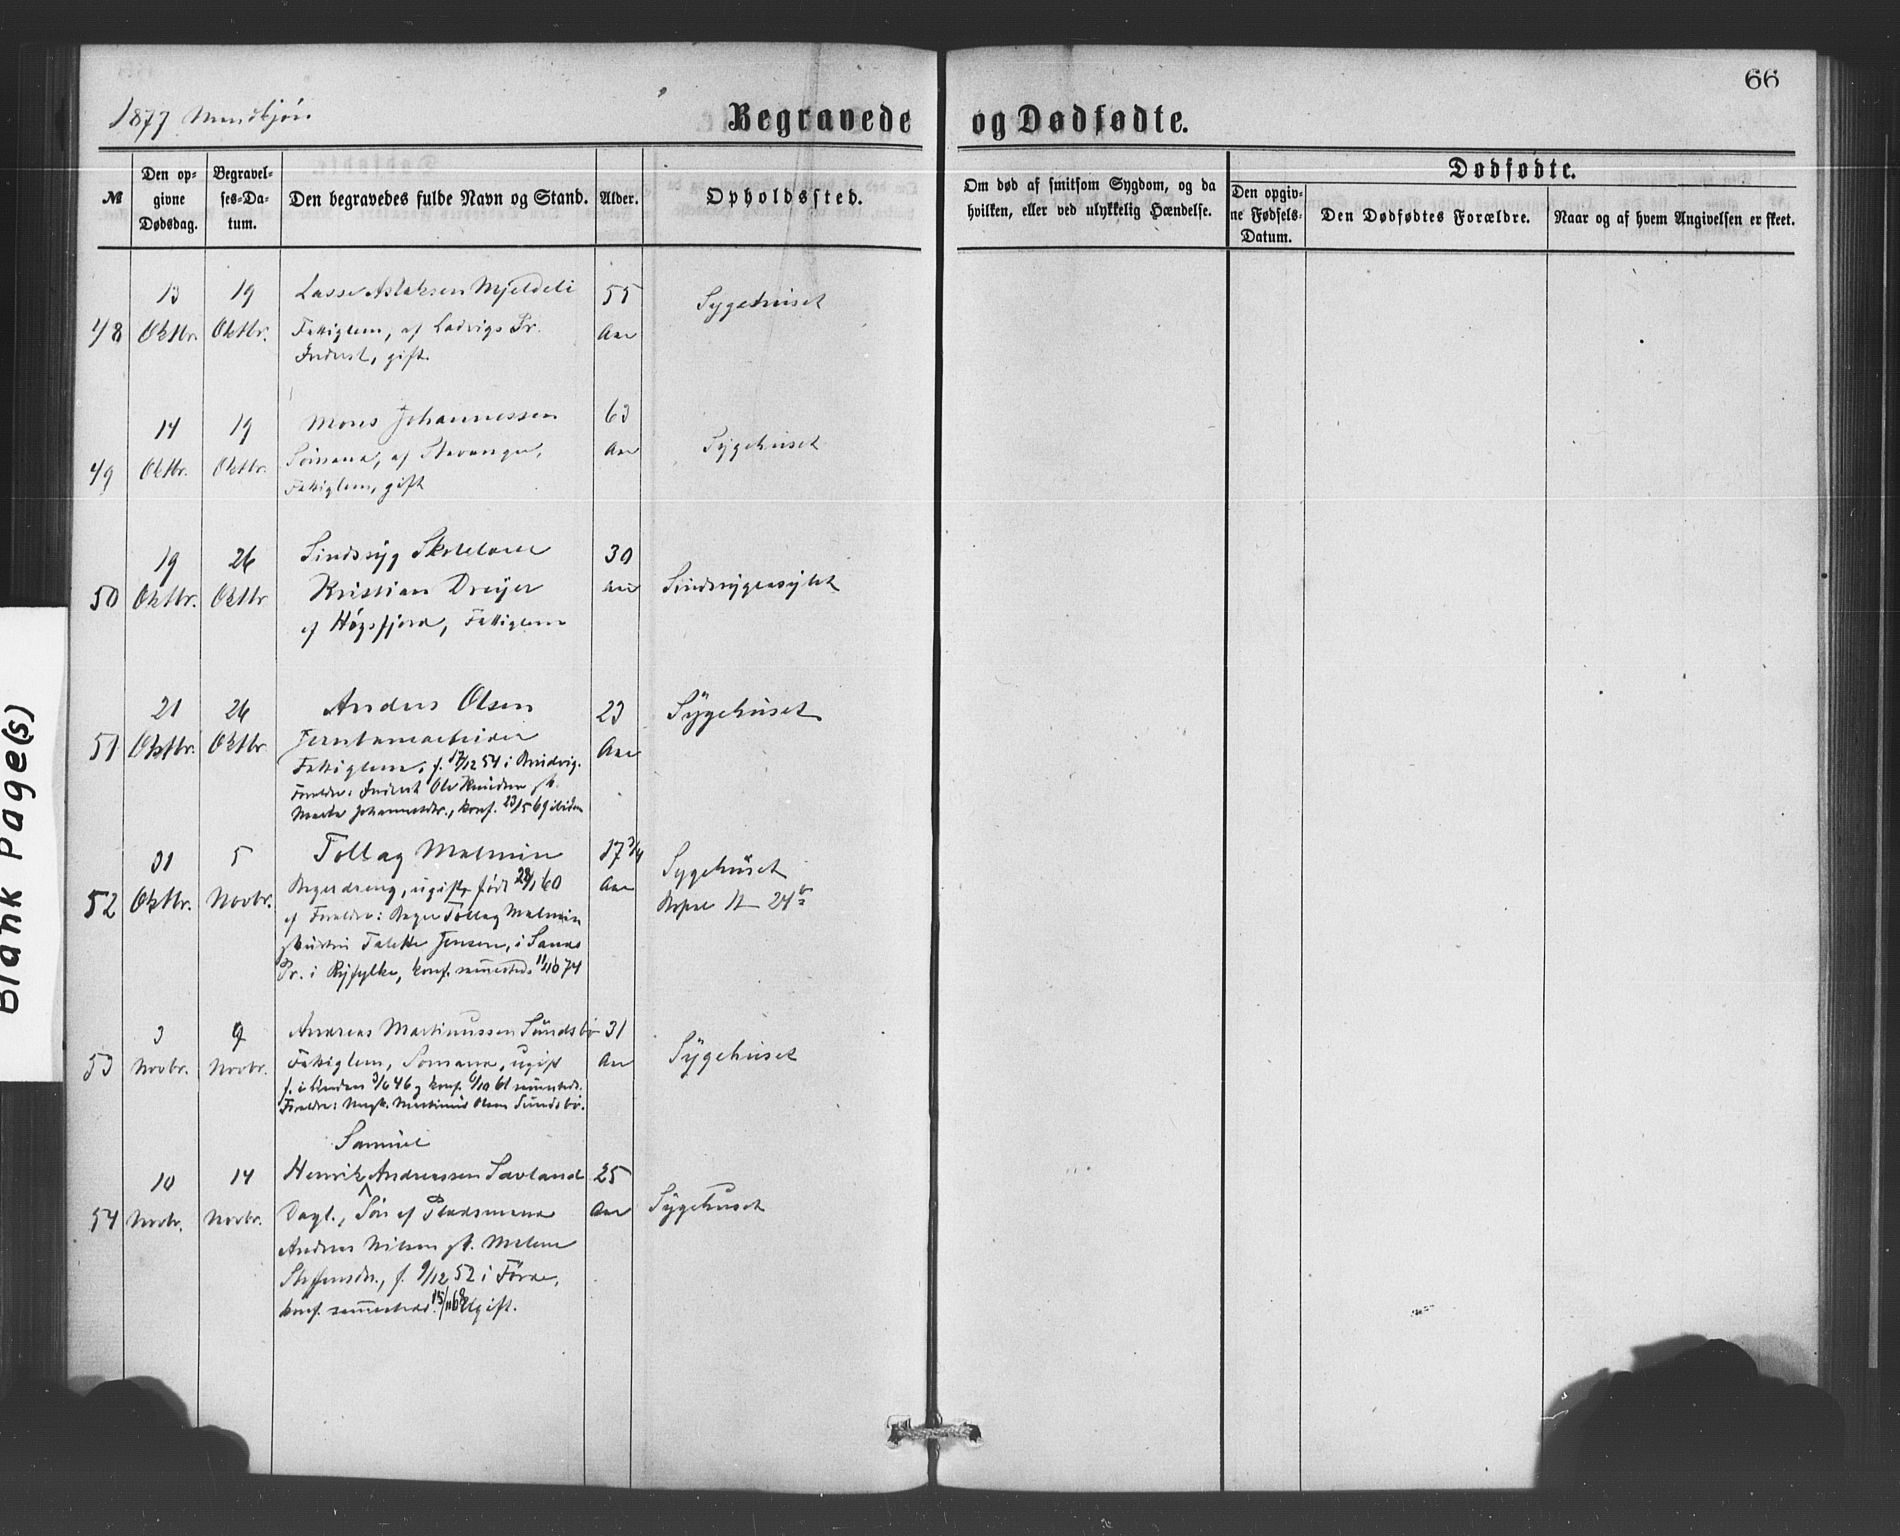 66
1877 Mandkjøn.
Begravede og Dødfødte.
№
Den opgivne Dødsdag.
Begravelses-Datum.
Den begravedes fulde Navn og Stand.
Alder.
Opholdssted.
Om død af smitsom Sygdom, og da hvilken, eller ved ulykkelig Hændelse.
Dødfødte.
Den opgivne Fødsels-Datum.
Den Dødfødtes Forældre.
Naar og af hvem Angivelsen er skeet.
48 13 Oktbr. 19 Oktbr. Lasse Aslaksen Mjeldeli 55 Aar Sygehuset
Fattiglem, af Ladvigs Pr.
Inderst, gift.
49 14 Oktbr. 19 Oktbr. Mons Johannessen 63 Aar Sygehuset
Sømand, af Stavanger,
Fattiglem, gift
50 19 Oktbr. 26 Oktbr Sindssyg Skolelærer 30 Aar Sindssygeasylet
Kristian Dreyer
af Høgsfjord, Fattiglem
51 21 Oktbr. 26 Oktbr. Anders Olsen 23 Aar Sygehuset
Jernbanearbeider
Fattiglem, f. 17/12 54 i
Forældre: Inderst Ole Knudsen og
Marta Johannesdtr., konf. 23/5 69 ibidem
52 31 Oktbr. 5 Novbr. Tollag Malmin 17 3/4 Aar Sygehuset
Bagerdreng, ugift, født 28/1 60
af Forældre: Bager Tollag Malmin
og Hustru Talette Jensen, i Sands
Pr. i Ryfylke, konf. sammesteds 11/10 74
53 3 Novbr. 9 Novbr. Andreas Martinussen Sundsbø 31 Aar Sygehuset
Fattiglem, Sømand, ugift
f. i 3/6 46 og konf. 6/10 61 sammesteds.
Forældre: Martinus Olsen Sundsbø.
Samuel
54 10 Novbr. 14 Novbr. Henrik Andreassen Savland 25 Aar Sygehuset
Dagl., Søn af Pladsmand
Andreas Nilsen og Malene
Steffensdtr., f. 9/12 52 i Førde,
konf. sammesteds 15/11 68 Ugift.
Blank Page(s)